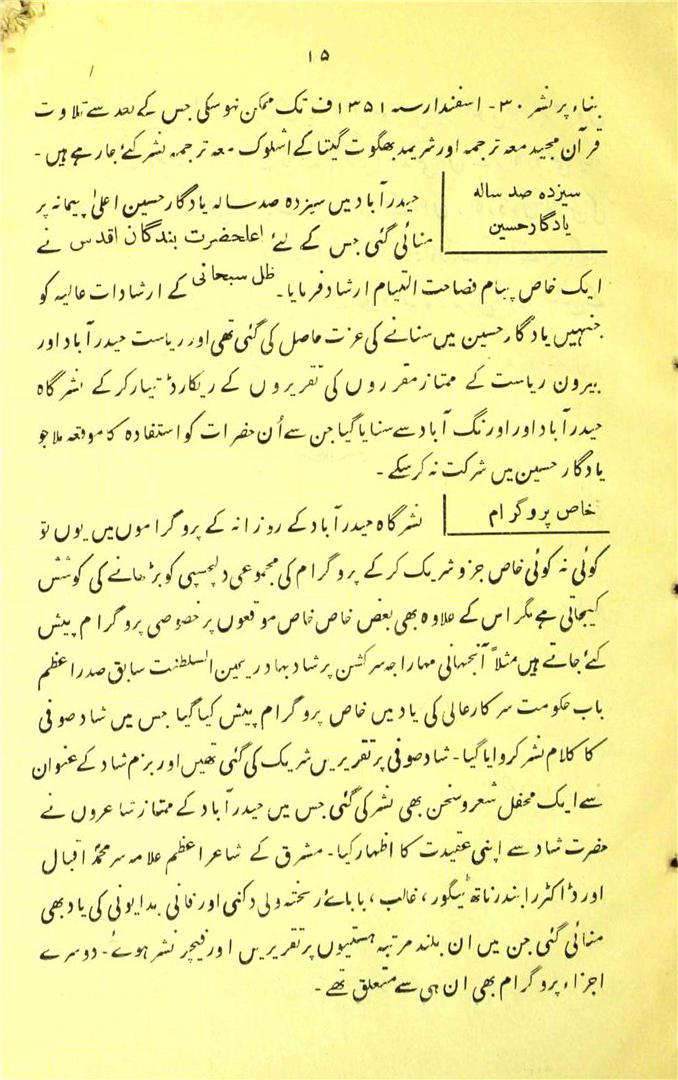 ۱۵
بناء پر نشر ۳۰- اسفندار سنہ ۱۳۵۱ف تک ممکن نہوسکی جس کے بعد سے تلاوت
قرآن مجید معہ ترجمہ اور شریمد بھگوت گیتا کے اشلوک معہ ترجمہ نشر کئے جارہے ہیں۔
سیزدہ صد سالہ
یادگار حسین
حیدرآباد میں سیزدہ صد سالہ یادگار حسین اعلیٰ پیمانہ پر
منائی گئی جس کے لئے اعلحضرت بندگان اقدس نے
ایک خاص پیام فصاحت التیام ارشاد فرمایا۔ ظل سبحانی کے ارشادات عالیہ کو
جنہیں یادگار حسین میں سنانے کی عزت حاصل کی گئی تھی اور ریاست حیدرآباد اور
بیرون ریاست کے ممتاز مقرروں کی تقریروں کے ریکارڈ تیار کرکے نشرگاہ
حیدرآباد اور اورنگ آباد سے سنایا گیا جن سے اُن حضرات کو استفادہ کا موقعہ ملا جو
یادگار حسین میں شرکت نہ کرسکے۔
خاص پروگرام
نشرگاہ حیدرآباد کے روزانہ کے پروگراموں میں یوں تو
کوئی نہ کوئی خاص جزو شریک کرکے پروگرام کی مجموعی دلچسپی کو بڑھانے کی کوشش
کیجاتی ہے مگر اس کے علاوہ بھی بعض خاص خاص موقعوں پر خصوصی پروگرام پیش
کئے جاتے ہیں مثلاً آنجہانی مہاراجہ سرکشن پرشاد بہادر یمین السلطنت سابق صدر اعظم
باب حکومت سرکار عالی کی یاد میں خاص پروگرام پیش کیا گیا جس میں شاد صوفی
کا کلام نشر کروایا گیا۔ شاد صوفی پر تقریریں شریک کی گئی تھیں اور بزم شاد کے عنوان
سے ایک محفل شعر و سخن بھی نشر کی گئی جس میں حیدرآباد کے ممتاز شاعروں نے
حضرت شاد سے اپنی عقیدت کا اظہار کیا۔ مشرق کے شاعر اعظم علامہ سر محمد اقبال
اور ڈاکٹر رابندر ناتھ ٹیگور، غالب، بابائے ریختہ ولی دکنی اور فانی بدایونی کی یاد بھی
منائی گئی جن میں ان بلند مرتبہ ہستیوں پر تقریریں اور فیچر نشر ہوئے۔ دوسرے
اجزاء پروگرام بھی ان ہی سے متعلق تھے۔